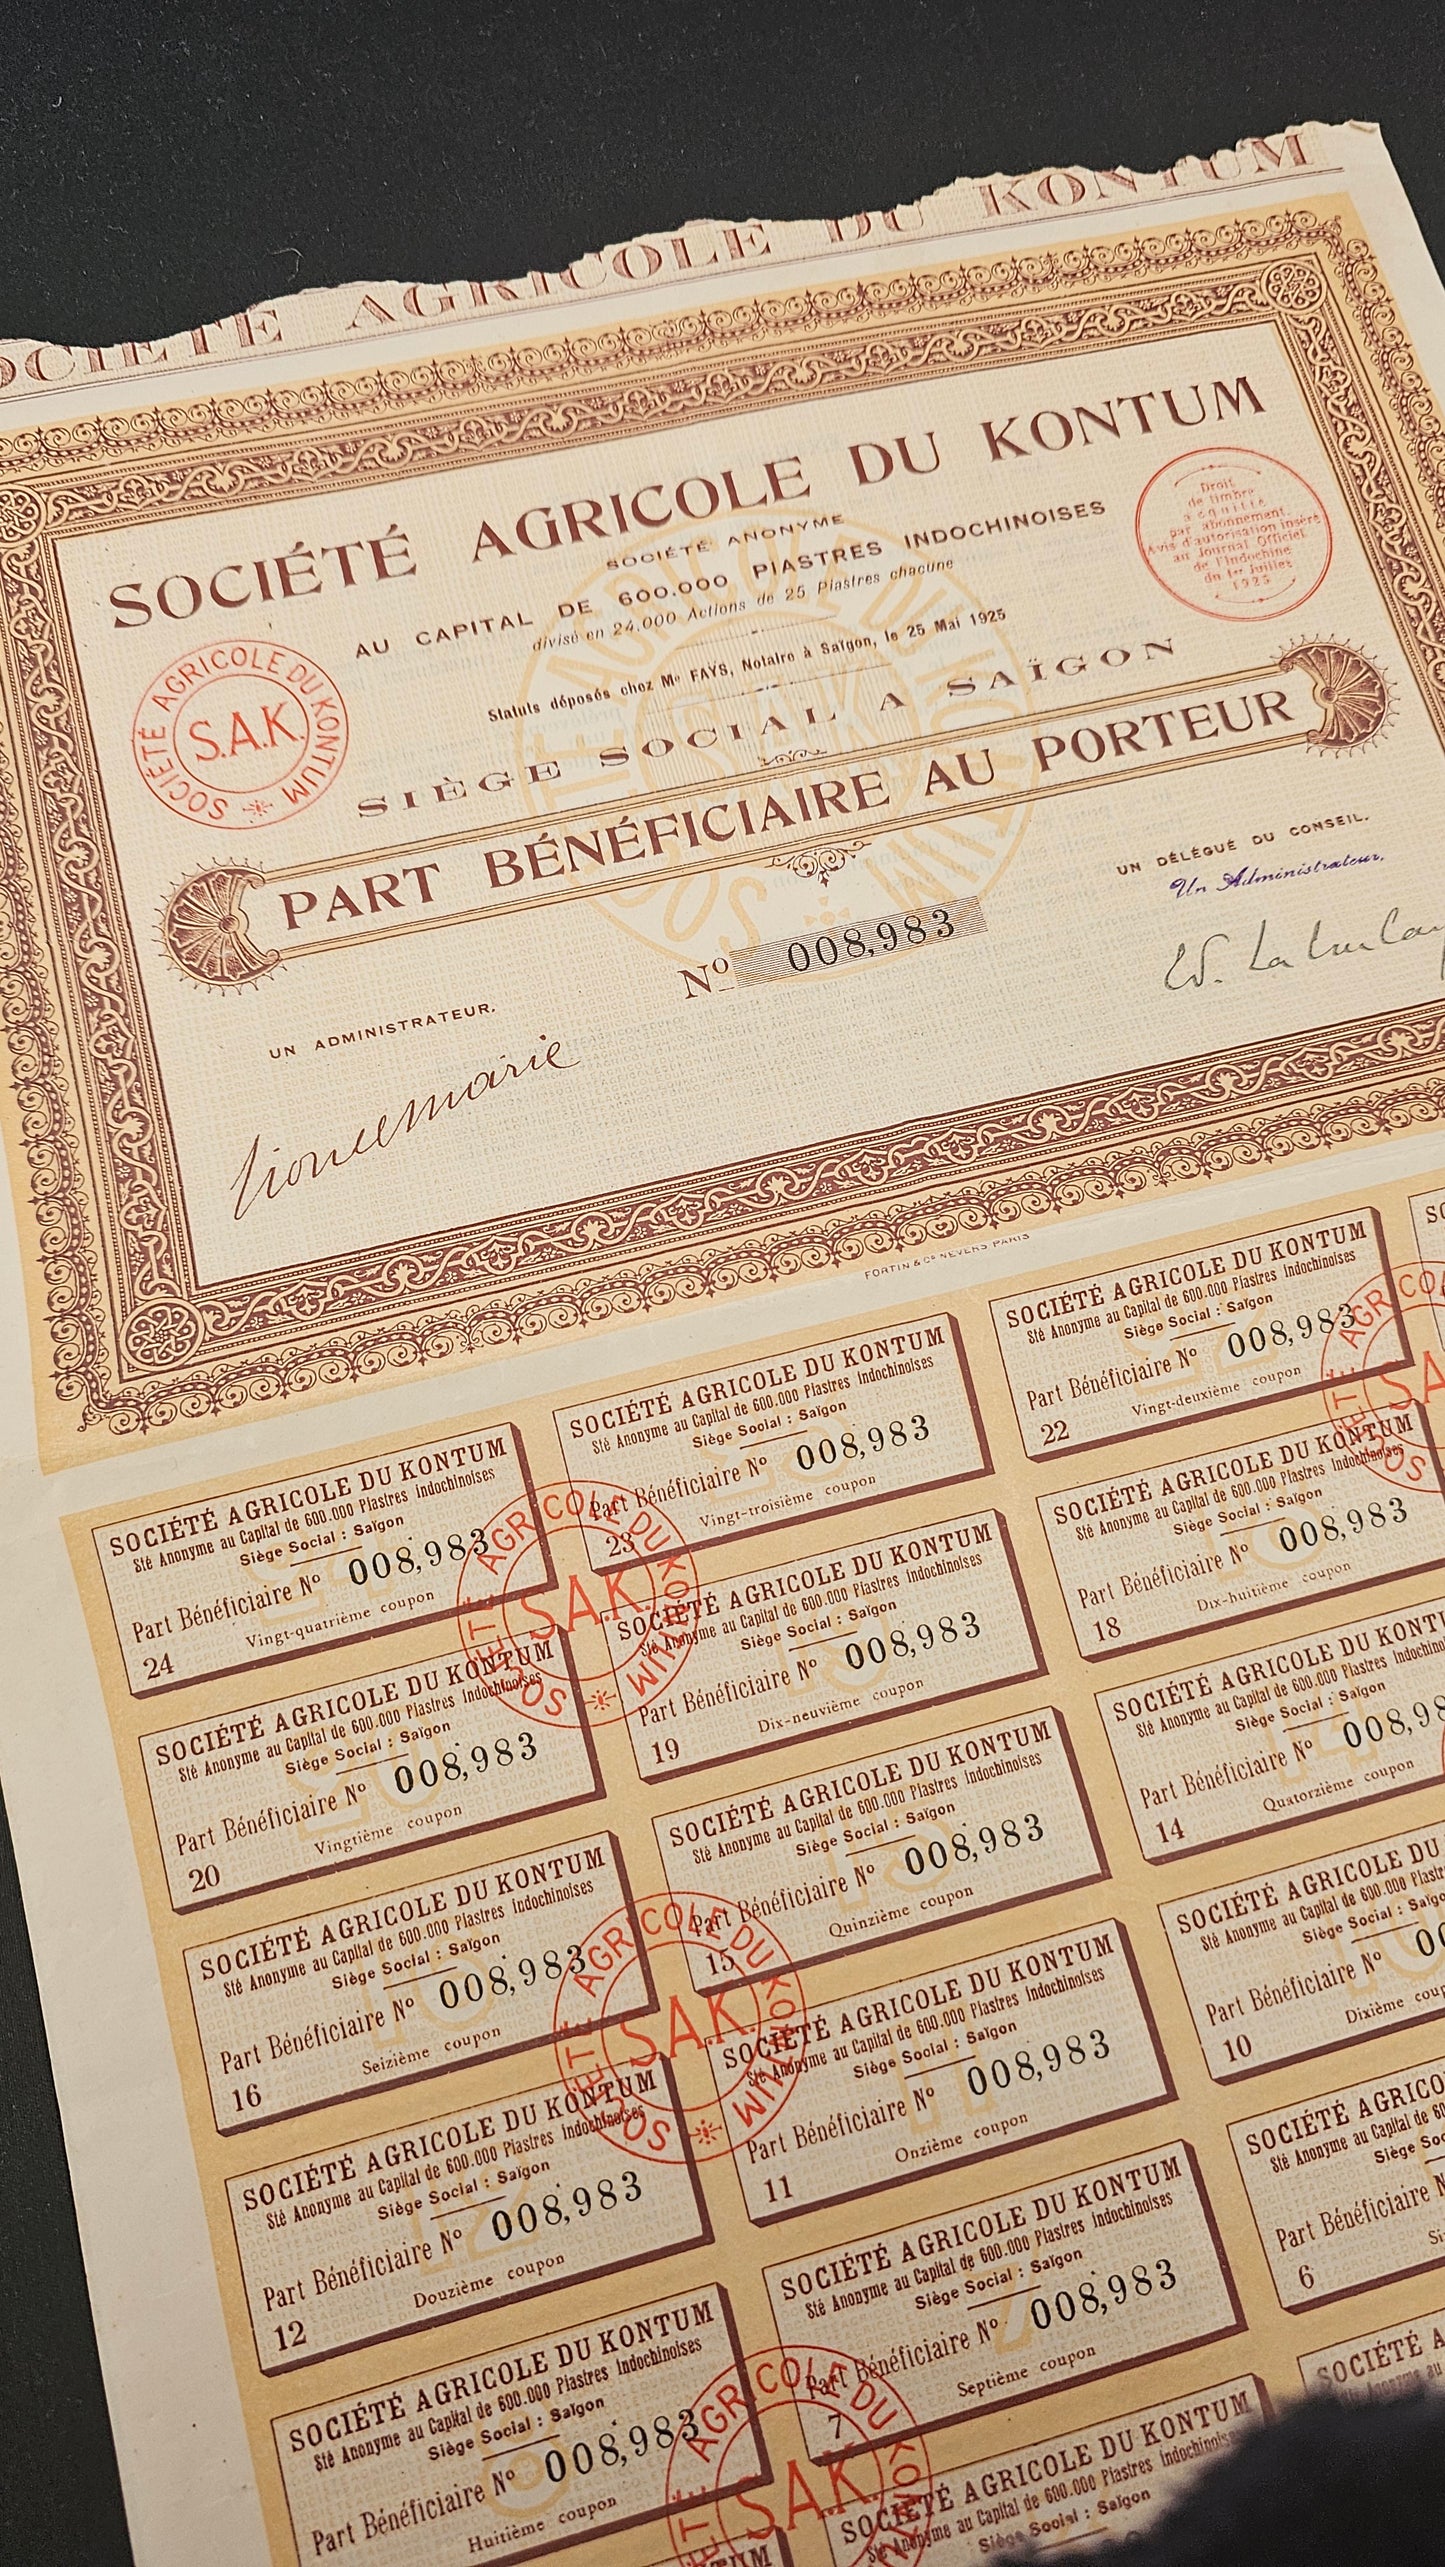 SOCIÉTÉ AGRICOLE DU KONTUM
SOCIÉTÉ AGRICOLE DU KONTUM
SOCIÉTÉ ANONYME
AU CAPITAL DE 600.000 PIASTRES INDOCHINOISES
divisé en 24.000 Actions de 25 Piastres chacune
Statuts déposés chez Me FAYS, Notaire à Saïgon, le 25 Mai 1925
SIÈGE SOCIAL A SAÏGON
PART BÉNÉFICIAIRE AU PORTEUR
Droit
de timbre
acquitté
par abonnement.
Avis d'autorisation inséré
au Journal Officiel
de l'Indochine
du 1er Juillet
1925
SOCIÉTÉ AGRICOLE DU KONTUM
S.A.K.
No 008,983
UN DÉLÉGUÉ DU CONSEIL.
Un Administrateur.
UN ADMINISTRATEUR.
FORTIN & Co NEVERS-PARIS
SOCIÉTÉ AGRICOLE DU KONTUM
Sté Anonyme au Capital de 600.000 Piastres Indochinoises
Siège Social : Saïgon
Part Bénéficiaire No 008,983
24 Vingt-quatrième coupon
SOCIÉTÉ AGRICOLE DU KONTUM
Sté Anonyme au Capital de 600.000 Piastres Indochinoises
Siège Social : Saïgon
Part Bénéficiaire No 008,983
23 Vingt-troisième coupon
SOCIÉTÉ AGRICOLE DU KONTUM
Sté Anonyme au Capital de 600.000 Piastres Indochinoises
Siège Social : Saïgon
Part Bénéficiaire No 008,983
22 Vingt-deuxième coupon
SOCIÉTÉ AGRICOLE DU KONTUM
S.A.K.
SOCIÉTÉ AGRICOLE DU KONTUM
Sté Anonyme au Capital de 600.000 Piastres Indochinoises
Siège Social : Saïgon
Part Bénéficiaire No 008,983
20 Vingtième coupon
SOCIÉTÉ AGRICOLE DU KONTUM
Sté Anonyme au Capital de 600.000 Piastres Indochinoises
Siège Social : Saïgon
Part Bénéficiaire No 008,983
19 Dix-neuvième coupon
SOCIÉTÉ AGRICOLE DU KONTUM
Sté Anonyme au Capital de 600.000 Piastres Indochinoises
Siège Social : Saïgon
Part Bénéficiaire No 008,983
18 Dix-huitième coupon
SOCIÉTÉ AGRICOLE DU KONTUM
Sté Anonyme au Capital de 600.000 Piastres Indochinoises
Siège Social : Saïgon
Part Bénéficiaire No 008,983
16 Seizième coupon
SOCIÉTÉ AGRICOLE DU KONTUM
Sté Anonyme au Capital de 600.000 Piastres Indochinoises
Siège Social : Saïgon
Part Bénéficiaire No 008,983
15 Quinzième coupon
SOCIÉTÉ AGRICOLE DU
Sté Anonyme au Capital de 600.000 Piastres
Siège Social : Saïgon
Part Bénéficiaire No 008,98
14 Quatorzième coupon
SOCIÉTÉ AGRICOLE DU KONTUM
S.A.K.
SOCIÉTÉ AGRICOLE DU KONTUM
Sté Anonyme au Capital de 600.000 Piastres Indochinoises
Siège Social : Saïgon
Part Bénéficiaire No 008,983
12 Douzième coupon
SOCIÉTÉ AGRICOLE DU KONTUM
Sté Anonyme au Capital de 600.000 Piastres Indochinoises
Siège Social : Saïgon
Part Bénéficiaire No 008,983
11 Onzième coupon
SOCIÉTÉ AGRICOLE DU
Sté Anonyme au Capital de 600.000
Siège Social :
Part Bénéficiaire No
10 Dixième
SOCIÉTÉ AGRICOLE DU KONTUM
Sté Anonyme au Capital de 600.000 Piastres Indochinoises
Siège Social : Saïgon
Part Bénéficiaire No 008,983
Huitième coupon
SOCIÉTÉ AGRICOLE DU KONTUM
Sté Anonyme au Capital de 600.000 Piastres Indochinoises
Siège Social : Saïgon
Part Bénéficiaire No 008,983
7 Septième coupon
SOCIÉTÉ
Sté Anonyme au Capital de
Siège
Part Bénéficiaire
6
SOCIÉTÉ AGRICOLE DU KONTUM
S.A.K.
SOCIÉTÉ AGRICOLE DU KONTUM
Sté Anonyme au Capital de 600.000 Piastres Indochinoises
Siège Social : Saïgon
SOCIÉTÉ